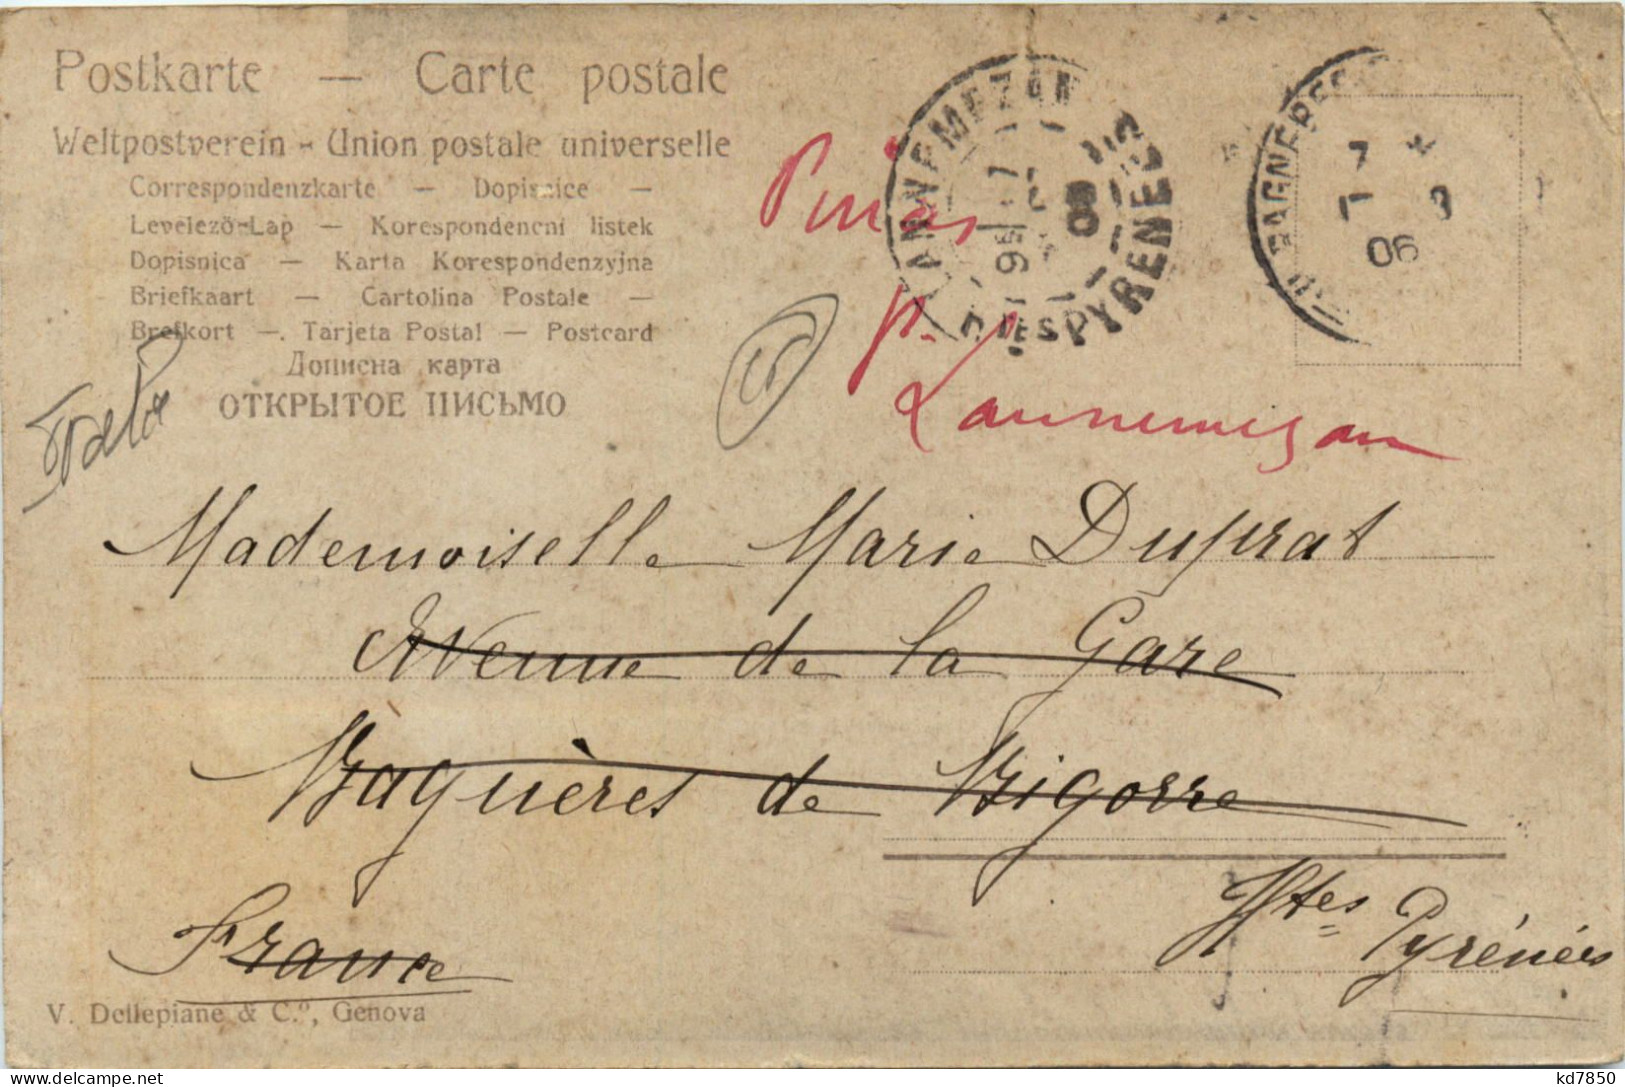 Postkarte — Carte postale
Weltpostverein - Union postale universelle
Correspondenzkarte — Dopisnice —
Levelező-Lap — Korespondencní listek
Dopisnica — Karta Korespondenzyjna
Briefkaart — Cartolina Postale —
Brefkort —. Tarjeta Postal — Postcard
Дописна карта
ОТКРЫТОЕ ПИСЬМО
LANNEMEZAN
HTES PYRENEES
BAGNERES
7
06
Pinas
p.
Lannemezan
Mademoiselle Marie Duprat
Avenue de la Gare
Bagnères de Bigorre
Htes Pyrénées
France
V. Dellepiane & C.º, Genova
kd7850